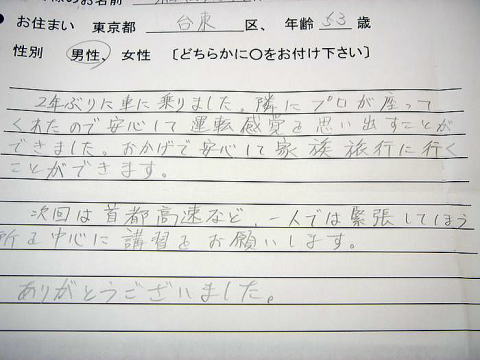 のお名前
● お住まい 東京都 台東 区、年齢 53 歳
性別 男性、女性 〔どちらかに〇をお付け下さい〕
2年ぶりに車に乗りました。隣にプロが座って
くれたので安心して運転感覚を思い出すことが
できました。おかげで安心して家族旅行に行く
ことができます。
次回は首都高速など、一人では緊張してしまう
所を中心に講習をお願いします。
ありがとうございました。